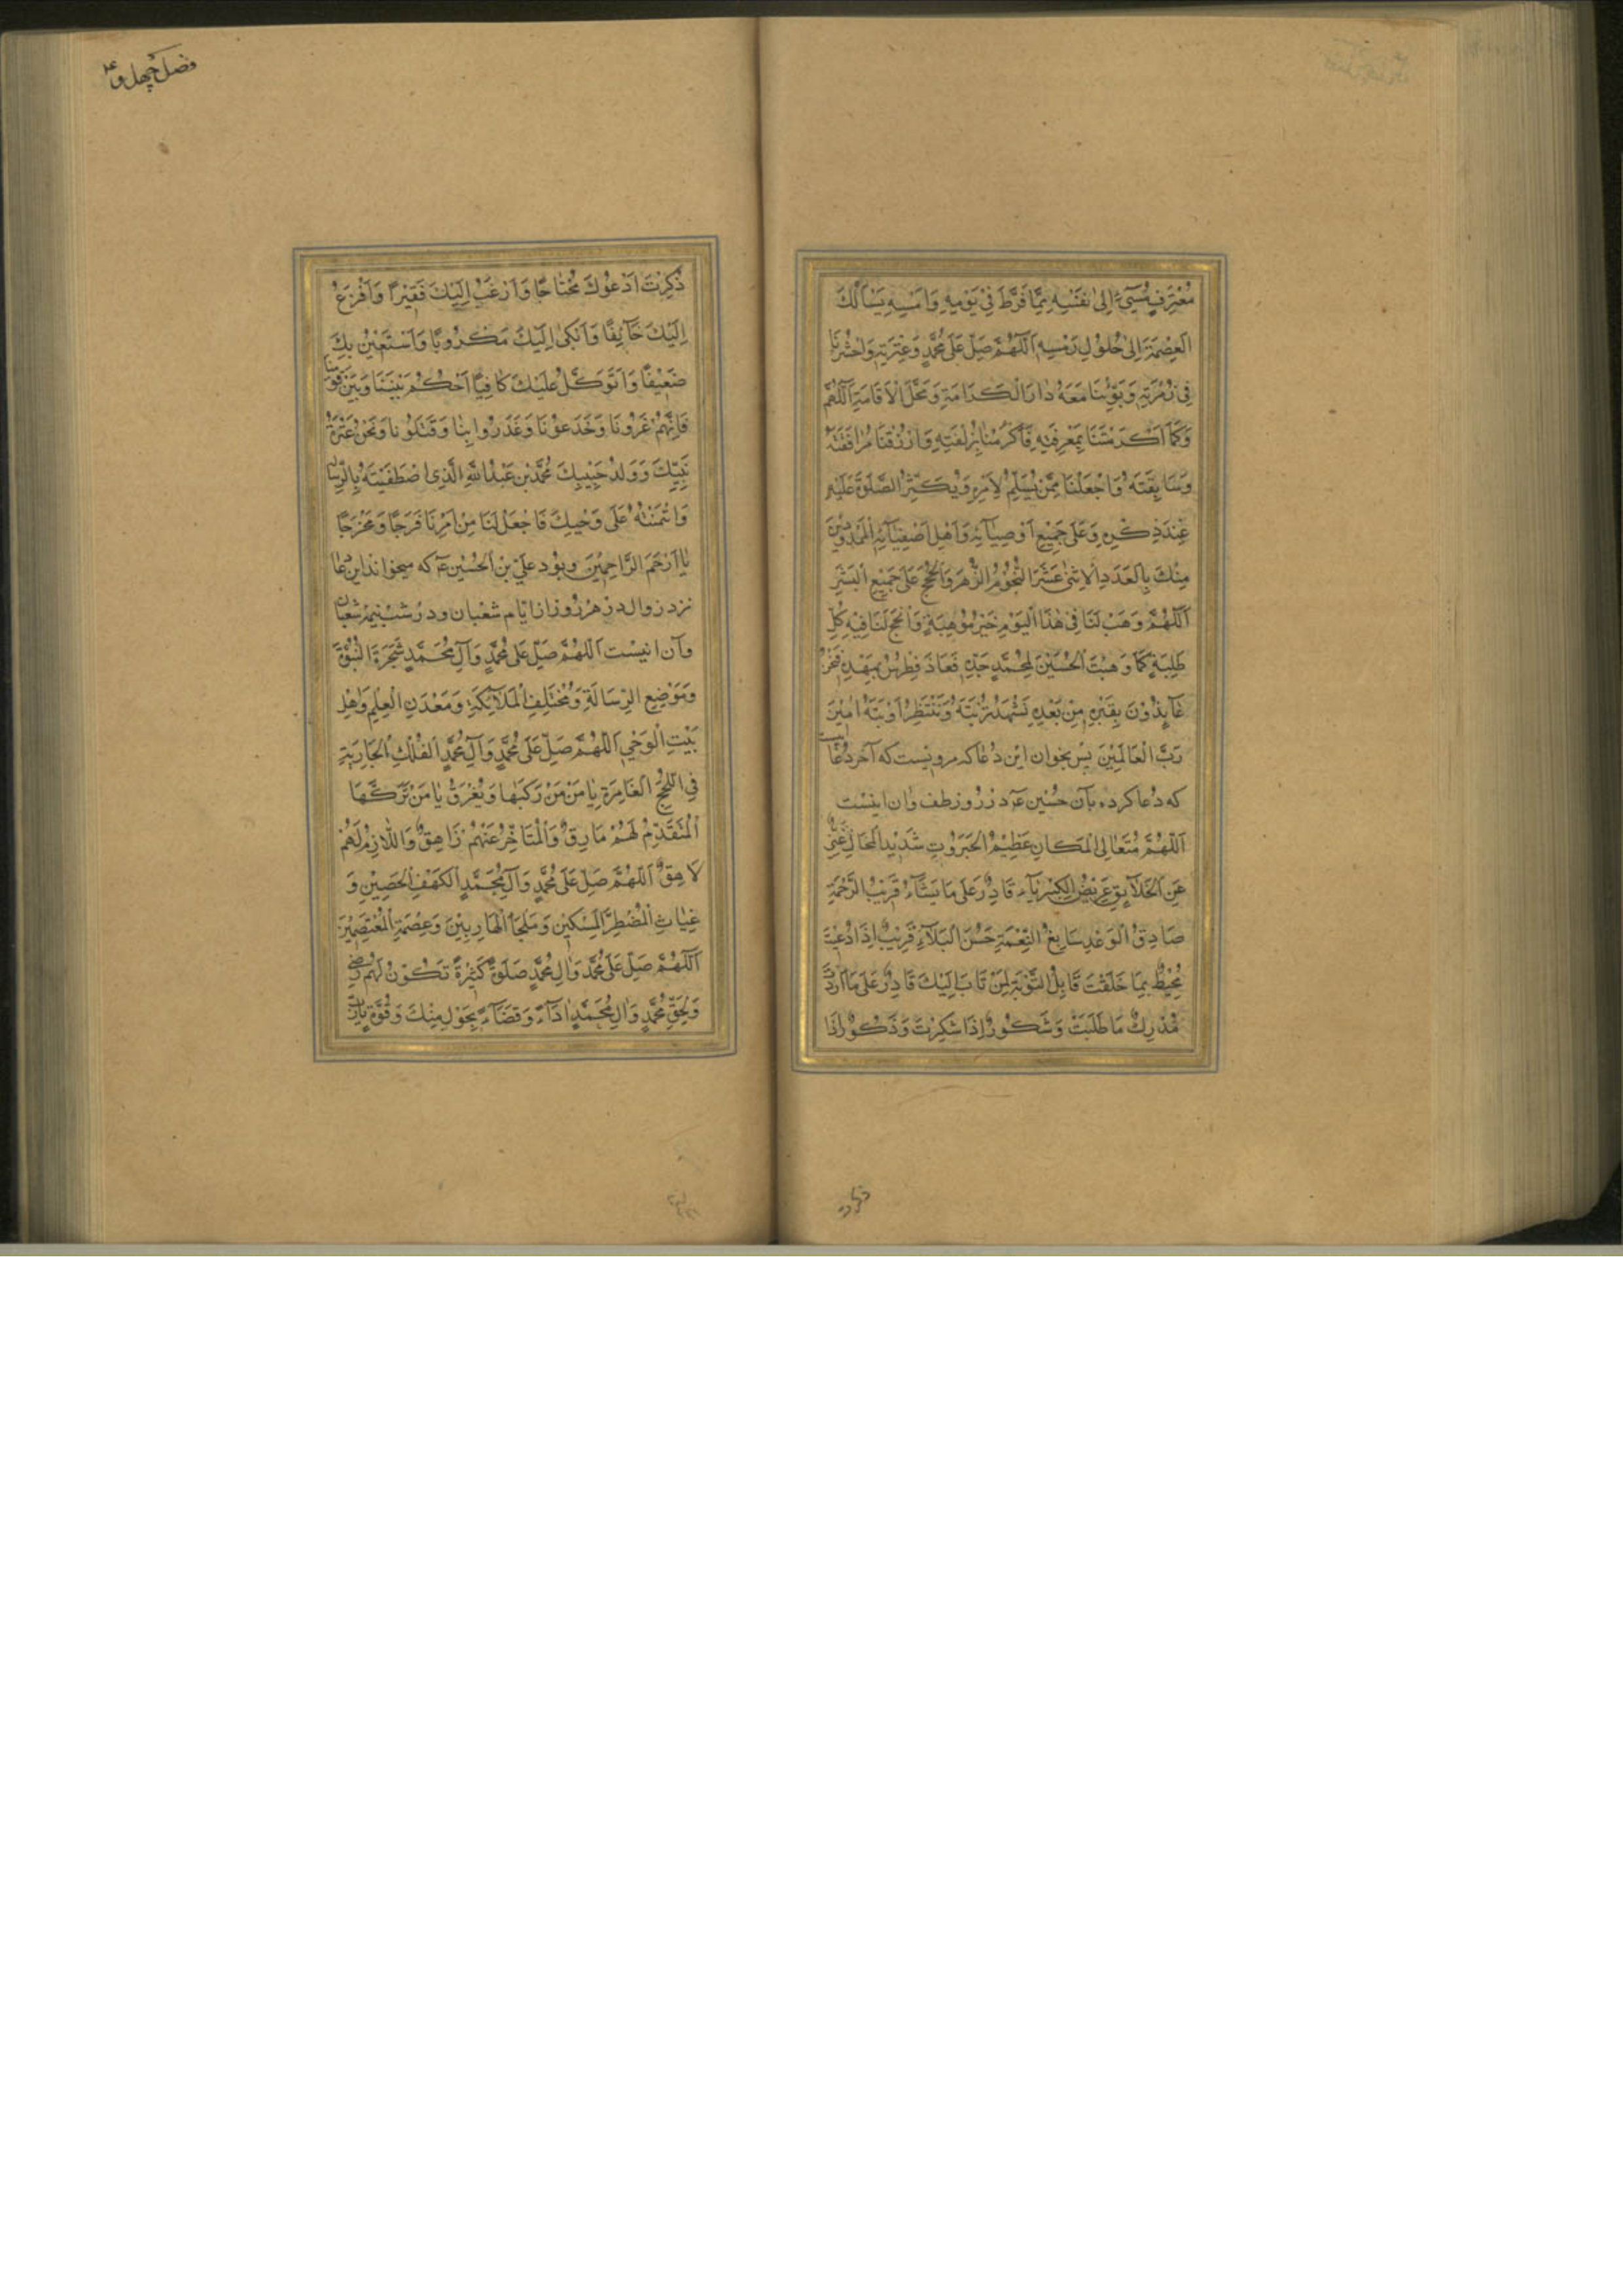 مُعْتَرِفٍ مُسِيءٍ إِلىٰ نَفْسِهِ مِمَّا فَرَّطَ فِي يَوْمِهِ وَاَمْسِهِ يَسْأَلُكَ
الْعِصْمَةَ اِلىٰ حُلُولِ رَمْسِهِ اَللّهُمَّ صَلِّ عَلىٰ مُحَمَّدٍ وَعِتْرَتِهِ وَاحْشُرْنَا
فِي زُمْرَتِهِ وَبَوِّئْنَا مَعَهُ دٰارَ الْكَرَامَةِ وَمَحَلَّ الْاَقَامَةِ اَللّٰهُمَّ
وَكَمَا اَكْرَمْتَنَا بِمَعْرِفَتِهِ فَأَكْرِمْنَا بِزُلْفَتِهِ وَارْزُقْنَا مُرَافَقَتَهُ
وَسَابِقَتَهُ وَاجْعَلْنَا مِمَّنْ يُسَلِّمُ لِاَمْرِهِ وَيُكَثِّرُ الصَّلٰوةَ عَلَيْهِ
عِنْدَ ذِكْرِهِ وَعَلىٰ جَمِيْعِ اَوْصِيَآئِهِ وَاَهْلِ اَصْفِيَآئِهِ الْمَمْدُودِيْنَ
مِنْكَ بِالْعَدَدِ الْاِثْنىٰ عَشَرَ النُّجُوْمِ الزُّهَرِ وَالْحُجَجِ عَلىٰ جَمِيْعِ الْبَشَرِ
اَللّٰهُمَّ وَهَبْ لَنَا فِي هٰذَا الْيَوْمِ خَيْرَ مَوْهِبَةٍ وَاَنْجِحْ لَنَا فِيْهِ كُلَّ
طَلِبَةٍ كَمَا وَهَبْتَ الْحُسَيْنَ لِمُحَمَّدٍ جَدِّهِ وَعَاذَ فُطْرُسُ بِمَهْدِهِ فَنَحْنُ
عَائِذُوْنَ بِقَبْرِهِ مِنْ بَعْدِهِ نَشْهَدُ تُرْبَتَهُ وَنَنْتَظِرُ اَوْبَتَهُ اٰمِيْنَ
رَبَّ الْعَالَمِيْنَ پس بخوان اين دُعا كه مرويست كه آخر دُعا
كه دُعا كرده بآن حُسَين عۤ در روز طف وان اينست
اَللّٰهُمَّ مُتَعَالِي الْمَكَانِ عَظِيْمَ الْجَبَرُوتِ شَدِيْدَ الْمِحَالِ غَنِيٌّ
عَنِ الْخَلَآئِقِ عَرِيْضُ الْكِبْرِيَآءِ قَادِرٌ عَلىٰ مَا يَشَآءُ قَرِيْبُ الرَّحْمَةِ
صَادِقُ الْوَعْدِ سَابِغُ النِّعْمَةِ حَسَنُ الْبَلَآءِ قَرِيْبٌ اِذَا دُعِيْتَ
مُحِيْطٌ بِمَا خَلَقْتَ قَابِلُ التَّوْبَةِ لِمَنْ تَابَ اِلَيْكَ قَادِرٌ عَلىٰ مَا اَرَدْتَ
مُدْرِكٌ مَا طَلَبْتَ وَشَكُوْرٌ اِذَا شُكِرْتَ وَذَكُوْرٌ اِذَا
فصل چهل و
ذُكِرْتَ اَدْعُوْكَ مُحْتَاجًا وَاَرْغَبُ اِلَيْكَ فَقِيْرًا وَاَفْزَعُ
اِلَيْكَ خَآئِفًا وَاَبْكىٰ اِلَيْكَ مَكْرُوْبًا وَاَسْتَعِيْنُ بِكَ
ضَعِيْفًا وَاَتَوَكَّلُ عَلَيْكَ كَافِيًا اُحْكُمْ بَيْنَنَا وَبَيْنَ قَوْمِنَا
فَاِنَّهُمْ غَرُّوْنَا وَخَدَعُوْنَا وَغَدَرُوا بِنَا وَقَتَلُوْنَا وَنَحْنُ عِتْرَةُ
نَبِيِّكَ وَوَلَدُ حَبِيْبِكَ مُحَمَّدِ بْنِ عَبْدِ اللهِ الَّذِي اصْطَفَيْتَهُ بِالرِّسَالَةِ
وَائْتَمَنْتَهُ عَلىٰ وَحْيِكَ فَاجْعَلْ لَنَا مِنْ اَمْرِنَا فَرَجًا وَمَخْرَجًا
يٰا اَرْحَمَ الرَّاحِمِيْنَ وبود علي بن الحُسَين عۤ كه ميخواند اين دعا
نزد زوال در هر روز از ايام شعبان ودر شب نيمه شعبان
وآن اينست اَللّٰهُمَّ صَلِّ عَلىٰ مُحَمَّدٍ وَآلِ مُحَمَّدٍ شَجَرَةِ النُّبُوَّةِ
وَمَوْضِعِ الرِّسَالَةِ وَمُخْتَلَفِ الْمَلَآئِكَةِ وَمَعْدَنِ الْعِلْمِ وَاَهْلِ
بَيْتِ الْوَحْيِ اَللّٰهُمَّ صَلِّ عَلىٰ مُحَمَّدٍ وَآلِ مُحَمَّدٍ الْفُلْكِ الْجَارِيَةِ
فِي اللُّجَجِ الْغَامِرَةِ يٰامَنُ مَنْ رَكِبَهَا وَيُغْرَقُ يٰا مَنْ تَرَكَهَا
اَلْمُتَقَدِّمُ لَهُمْ مَارِقٌ وَالْمُتَاَخِّرُ عَنْهُمْ زَاهِقٌ وَاللَّازِمُ لَهُمْ
لَاحِقٌ اَللّٰهُمَّ صَلِّ عَلىٰ مُحَمَّدٍ وَآلِ مُحَمَّدٍ الْكَهْفِ الْحَصِيْنِ وَ
غِيَاثِ الْمُضْطَرِّ الْمِسْكِيْنِ وَمَلْجَأِ الْهَارِبِيْنَ وَعِصْمَةِ الْمُعْتَصِمِيْنَ
اَللّٰهُمَّ صَلِّ عَلىٰ مُحَمَّدٍ وَاٰلِ مُحَمَّدٍ صَلٰوةً كَثِيْرَةً تَكُوْنُ لَهُمْ رِضًى
وَلِحَقِّ مُحَمَّدٍ وَاٰلِ مُحَمَّدٍ اَدَآءً وَقَضَآءً بِحَوْلٍ مِنْكَ وَقُوَّةٍ يَارَبَّ